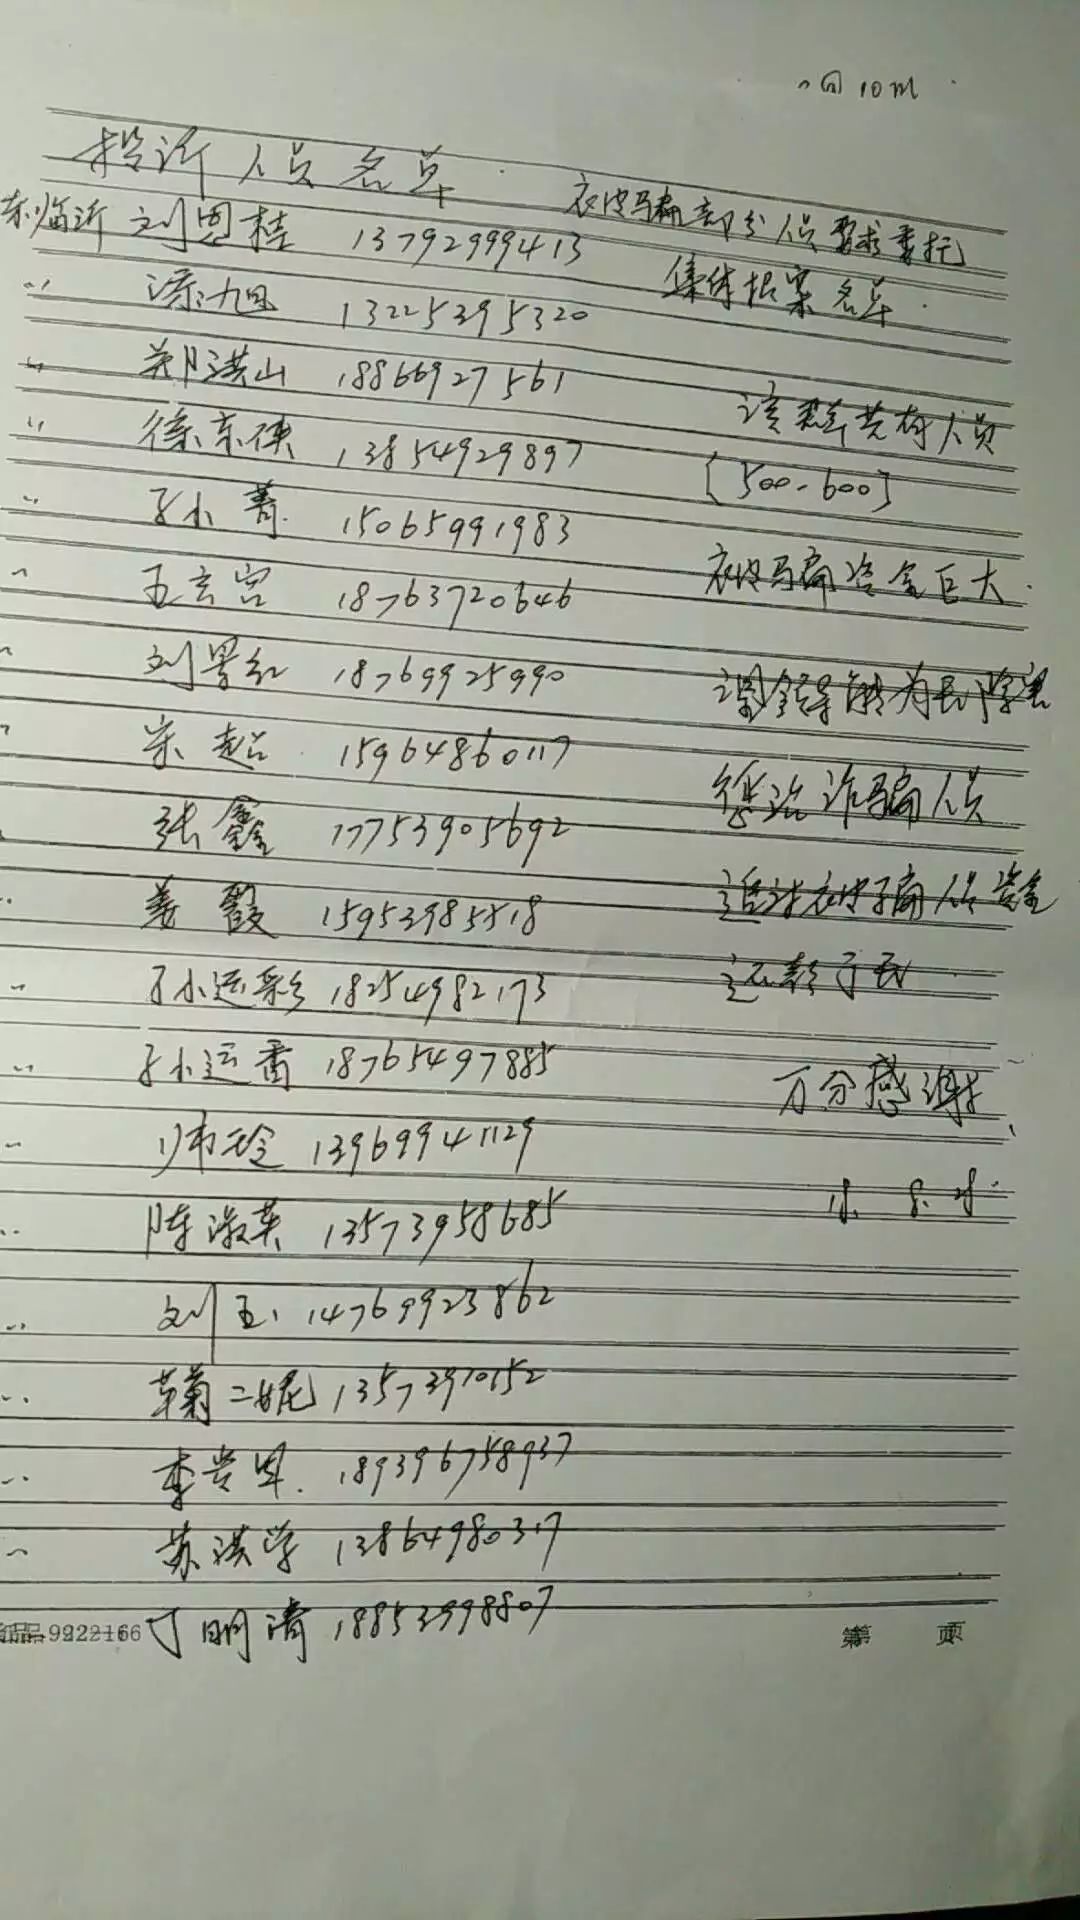 10
投诉人员名单
被骗部分人员要求举行
集体报案名单
东临沂 刘恩桂 13792999413
〃 涂旭 13225395320
〃 郑洪山 18866927561
〃 徐京侠 13854929897
〃 孙小菁 15065991983
〃 王玄宫 18763720646
〃 刘景红 18769925990
〃 宋超 15964860117
张鑫 17753905692
〃 姜霞 15953985518
〃 孙运彩 18254982173
〃 孙运香 18765497885
〃 师玲 13969941129
〃 陈淑英 13573958685
〃 刘玉 14769923862
〃 鞠二妮 13573970152
〃 李贵思 189396758937
〃 苏洪学 13864980317
丁明清 18853998807
该群共有人员
[500-600]
被骗资金巨大
望领导能为民除害
惩治诈骗人员
追讨被骗人员资金
还款于民
万分感谢
品-9222166
第 页